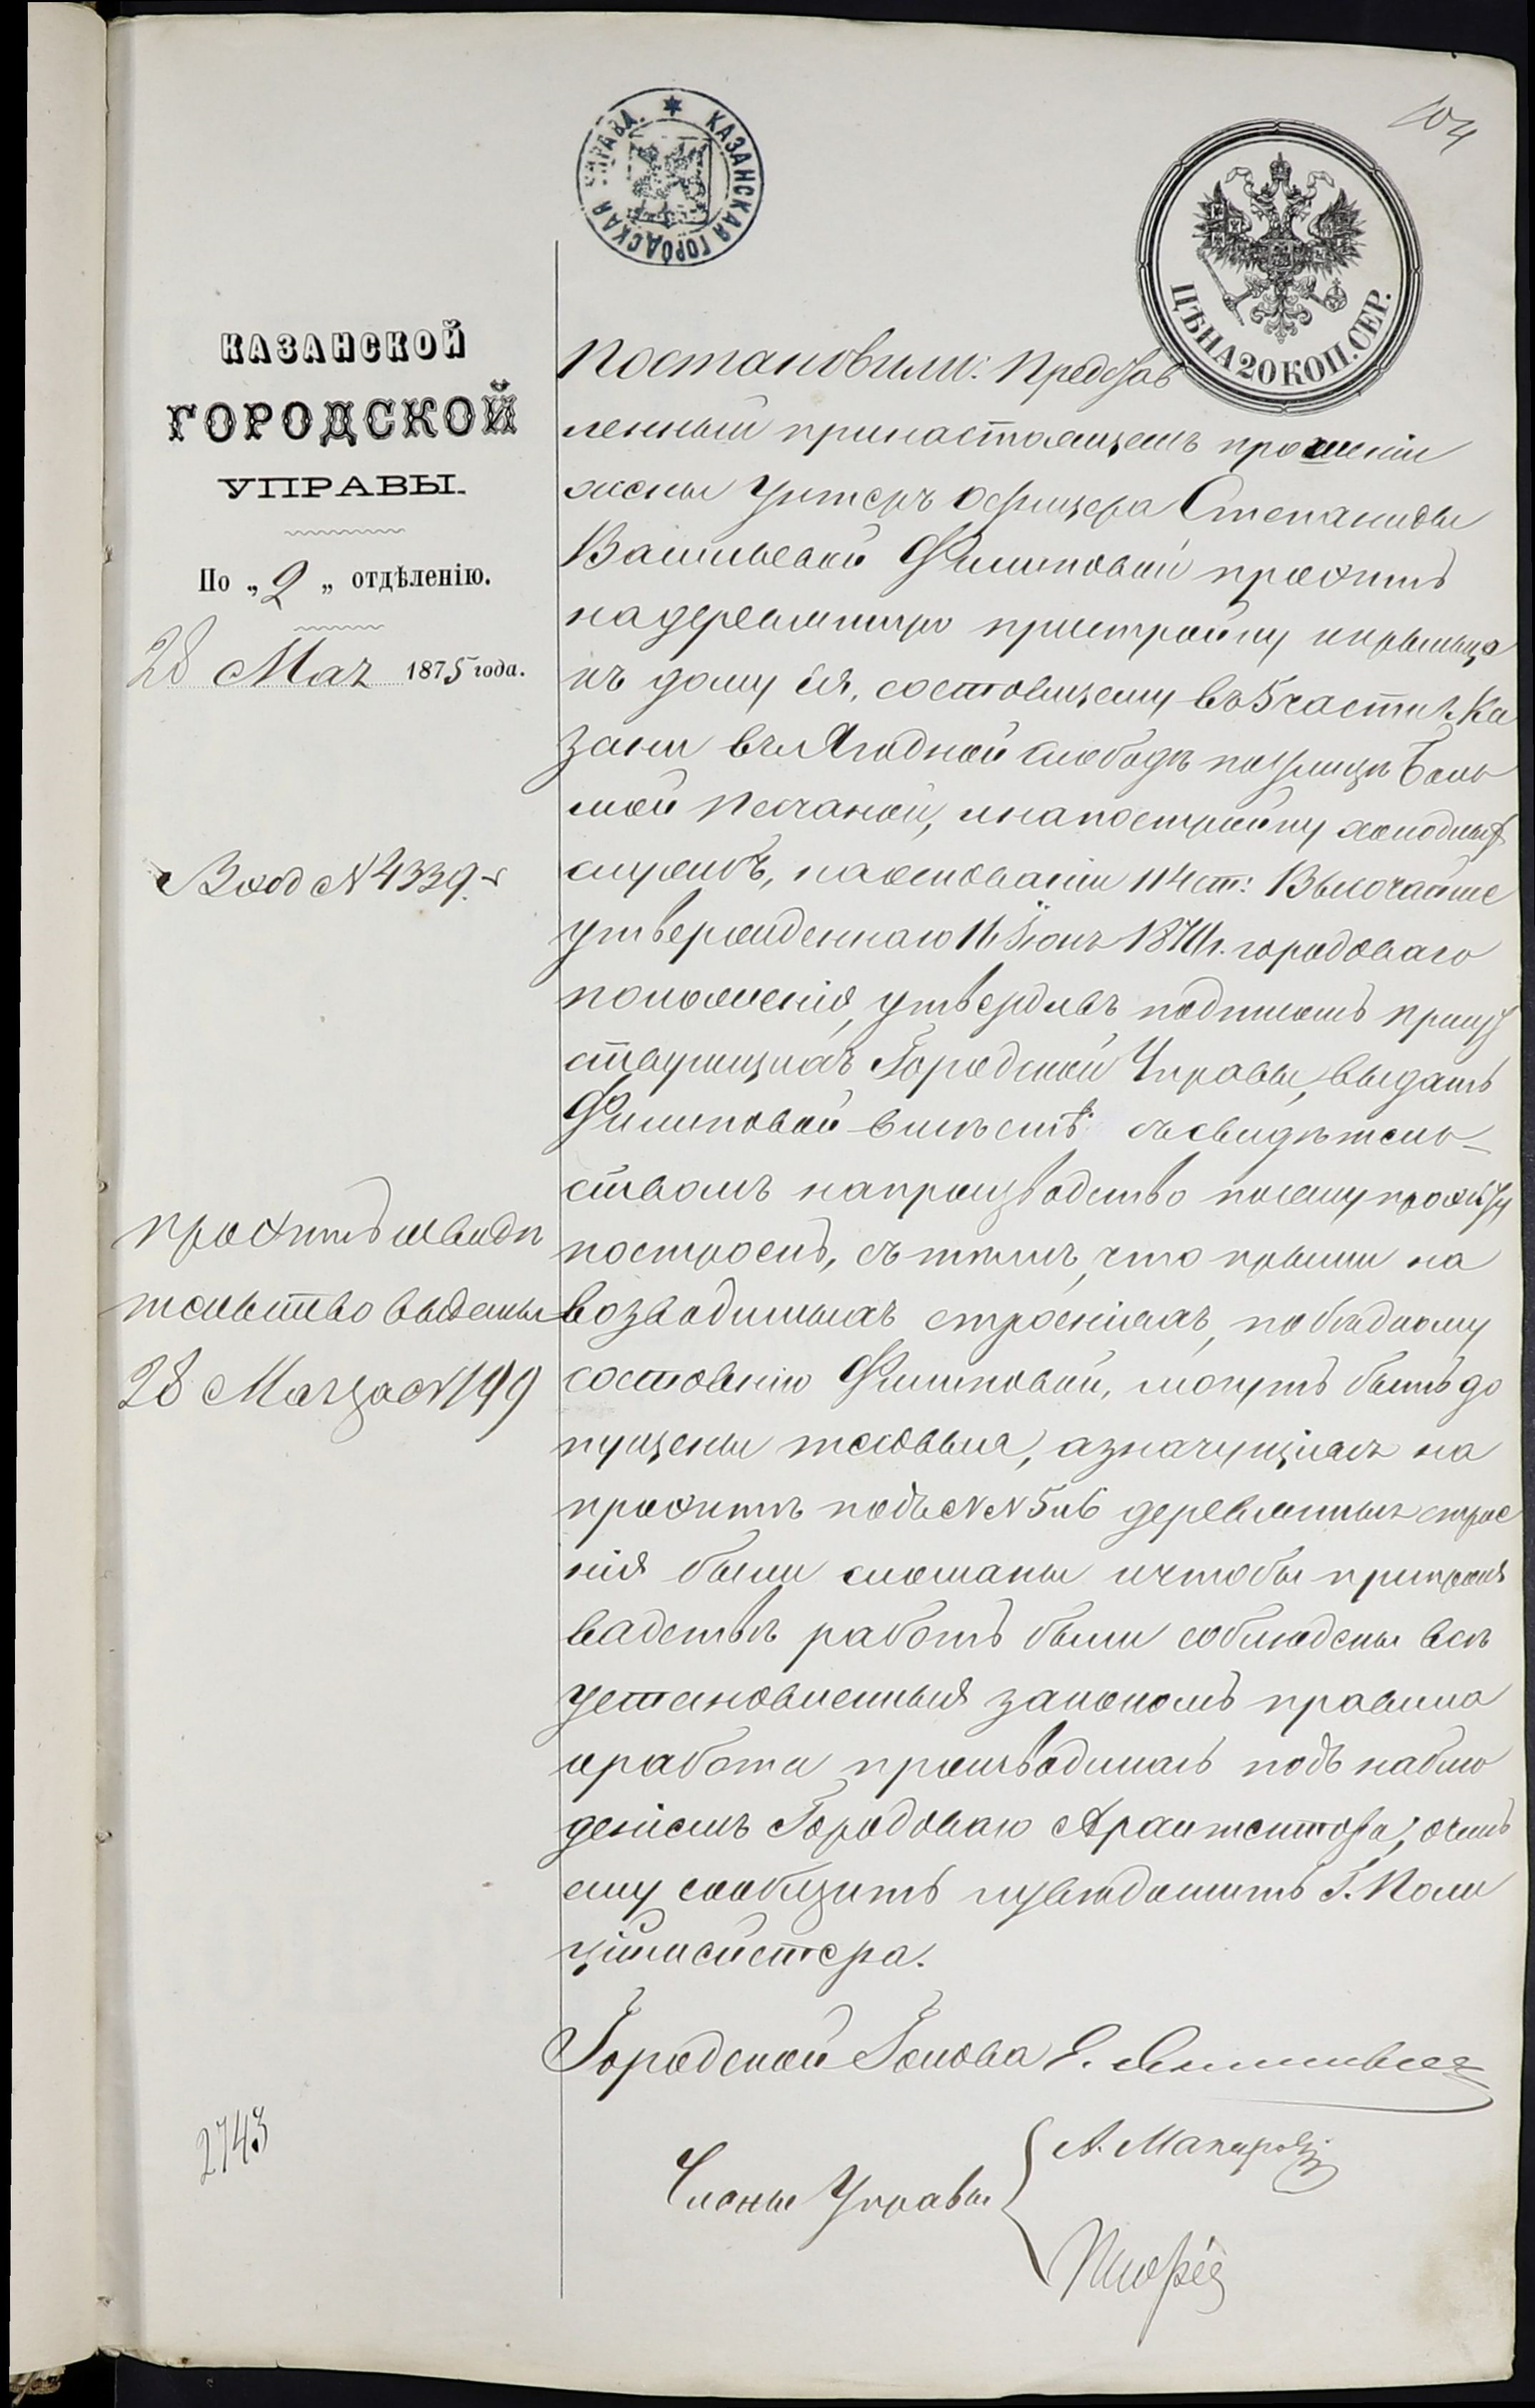 104
КАЗАНСКАЯ ГОРОДСКАЯ УПРАВА.
ЦѢНА 20 КОП. СЕР.
КАЗАНСКОЙ
ГОРОДСКОЙ
УПРАВЫ.
По „2„ отдѣленію.
28 Мая 1875 года.
Вход № 4339.
проэктъ и свидѣ
тельство выданы
28 Мая за № 1499
2743
Постановили: Представ
ленный при настоящемъ прошеніи
жены Унтеръ офицера Степаниды
Васильевой Филиповой проэктъ
на деревянную пристройку и крыльцо
къ дому ея, состоящему въ 5 части г. Ка
зани въ Ягодной слободѣ по улицѣ Боль
шой Песчаной, и на постройку холодныхъ
службъ, на основаніи 114 ст: Высочайше
утвержденнаго 16 Іюня 1870 г. городоваго
положенія, утвердивъ подписомъ присут
ствующихъ Городской Управы, выдать
Филиповой вмѣстѣ съ свидѣтель-
ствомъ на производство по сему проэкту
построекъ, съ тѣмъ, что крыши на
возводимыхъ строеніяхъ, по бѣдному
состоянію Филиповой, могутъ быть до
пущены тесовыя, а значущіяся на
проэктѣ подъ №№ 5 и 6 деревянныя строе
нія были сломаны и чтобы при произ
водствѣ работъ были соблюдены всѣ
установленныя закономъ правила
и работа производилась подъ наблю
деніемъ Городоваго Архитектора; о чемъ
ему сообщить и увѣдомить Г. Поли
ціймейстера.
Городской Голова Е.
Члены Управы
А.